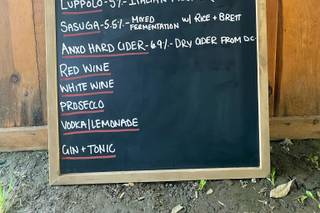 LUPPOLO - 5% - ITALIAN
SASUGA - 5.5% - MIXED FERMENTATION w/ RICE + BRETT
ANXO HARD CIDER - 6.9% - DRY CIDER FROM DC.
RED WINE
WHITE WINE
PROSECCO
VODKA/LEMONADE
GIN + TONIC